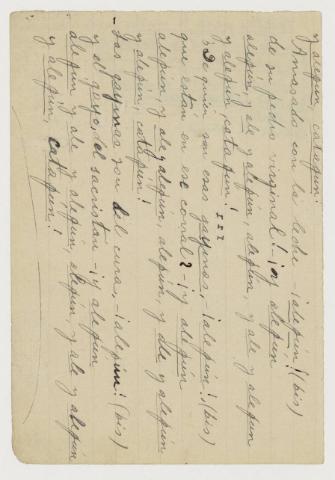 y alepún catapún!
Amasado con la leche - ¡alepún! (bis)
de su pedro virginal! ¡ay alepún
alepún, y ale y alepún, alepún, y ale y alepún
y alepún, catapún!
III
¿De quien son esas gayinas, ¡alepún! (bis)
que están en ese corral? - ¡y alepún
alepún, y ale y alepún, alepún, y ale y alepún
y alepún, catapún!
- Las gayinas son del cura, - ¡alepún! (bis)
y el gayo, del sacristan - ¡y alepun
alepún y ale y alepún, alepún, y ale y alepún
y alepún, catapún!